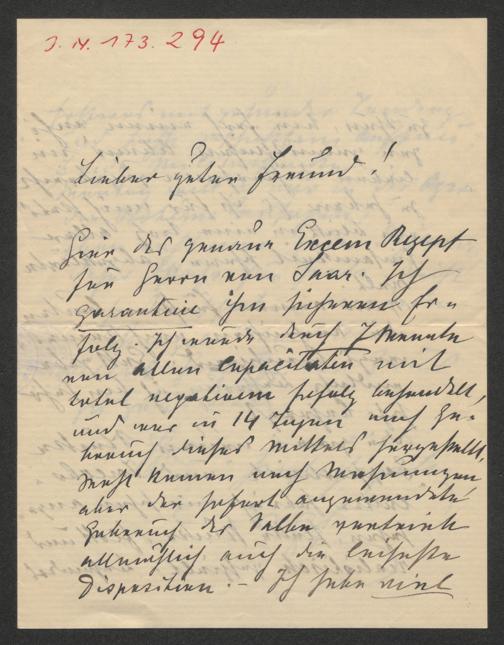 J. N. 173.294
Lieber guter Freund!
Hier das genaue Eczem Rezept
für Herrn von Saar. Ich
garantiere ihm sicheren Er-
folg. Ich wurde durch 7 Monate
von allen Capacitäten mit
total negativem Erfolg behandelt,
und war in 14 Tagen nach Ge-
brauch dieses Mittels hergestellt,
kamen noch Mahnungen
aber der sofort angewendete
Gebrauch der Salbe vertrieb
allmählich auch die leiseste
Disposition. – Ich habe viel